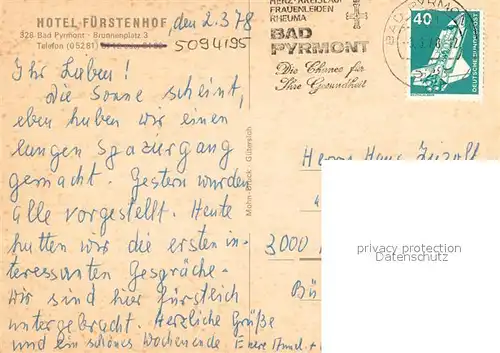 HOTEL FÜRSTENHOF, den 2.3.78
328 Bad Pyrmont · Brunnenplatz 3
Telefon (05281) 5094195
Ihr Lieben!
Die Sonne scheint,
eben haben wir einen
langen Spaziergang
gemacht. Gestern wurden
alle vorgestellt. Heute
hatten wir die ersten in-
teressanten Gespräche.
Wir sind hier fürstlich
untergebracht. Herzliche Grüße
und ein schönes Wochenende Eure
Mohn-Druck · Gütersloh
HERZ-KREISLAUF
FRAUENLEIDEN
RHEUMA
BAD
PYRMONT
Die Chance für
Ihre Gesundheit
BAD PYRMONT
40
DEUTSCHE BUNDESPOST
Herrn Hans
3000
privacy protection
Datenschutz